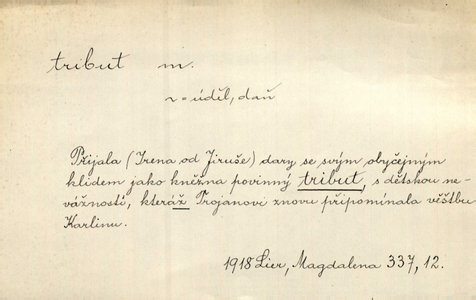 tribut m.
~ = úděl, daň
Přijala (Irena od Jiruše) dary se svým obyčejným
klidem jako kněžna povinný tribut, s dětskou ne-
vážností, kteráž Trojanovi znovu připomínala věštbu
Karlinu.
1918 Lier, Magdalena 337, 12.